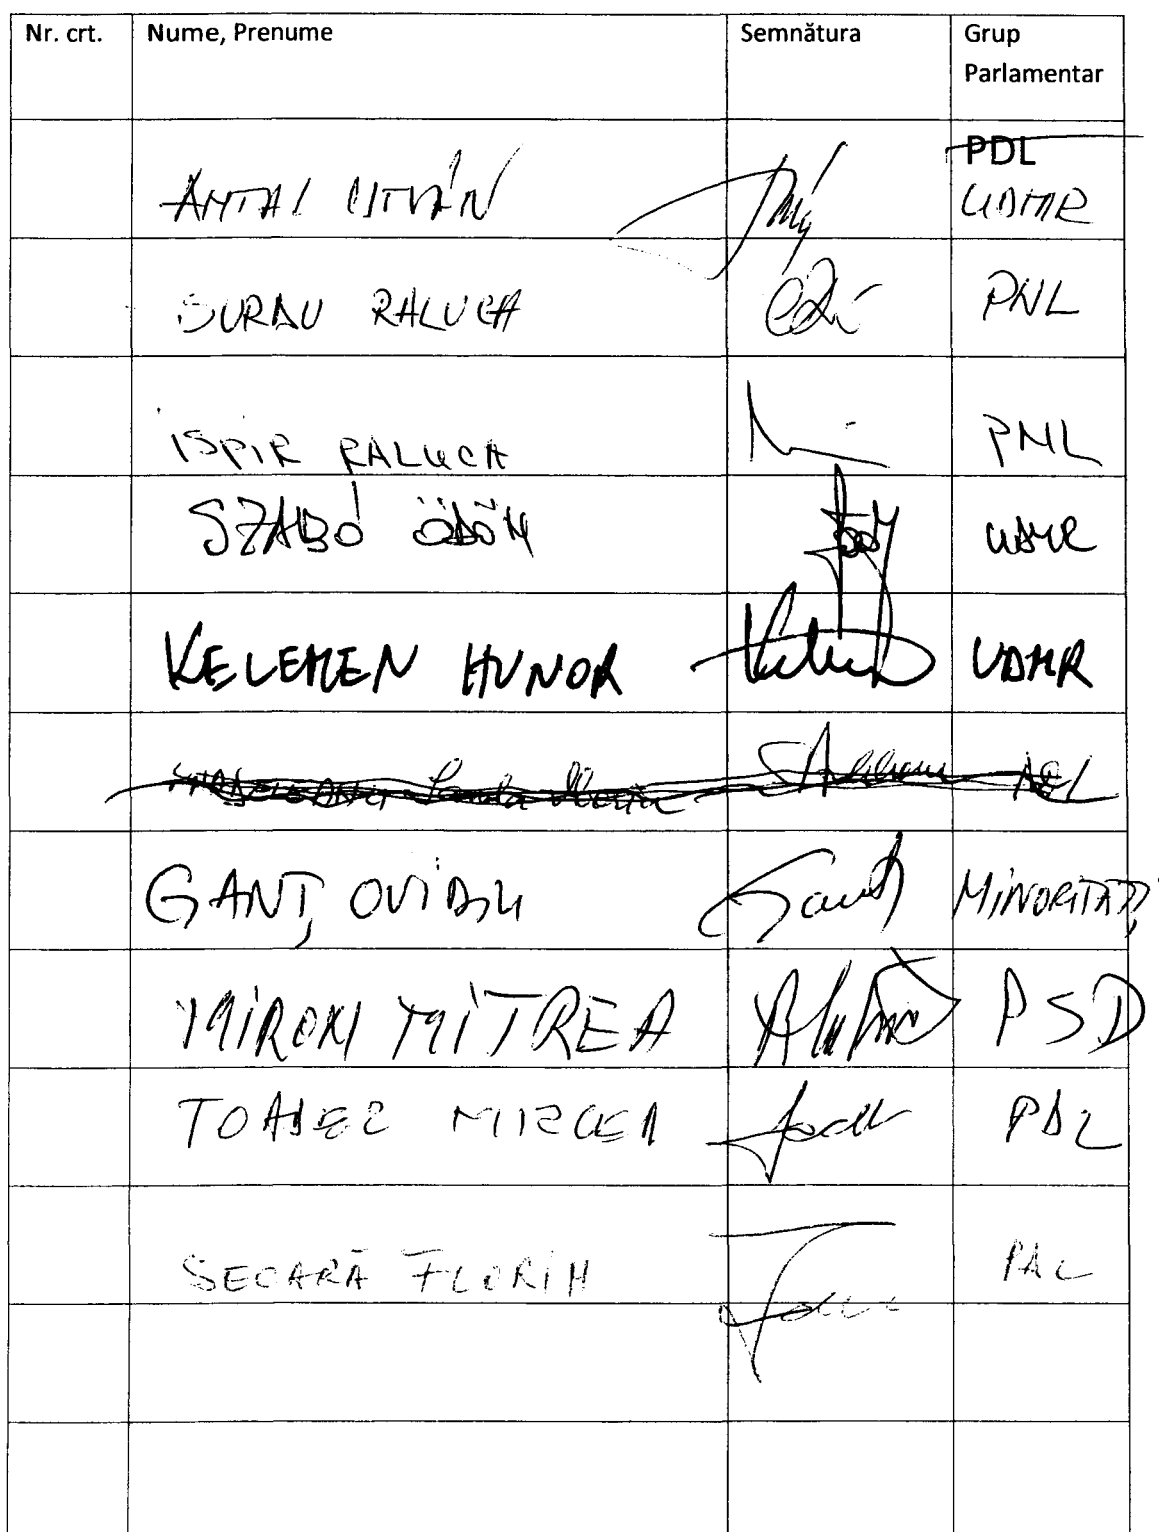 Nr. crt. Nume, Prenume Semnătura Grup
Parlamentar
PDL
ANTAL ISTVÁN UDMR
SURDU RALUCA PNL
ISPIR RALUCA PNL
SZABÓ ÖDÖN UDMR
KELEMEN HUNOR UDMR
GANȚ OVIDIU MINORITĂȚI
MIRON MITREA PSD
TOADER MIRCEA PDL
SECARĂ FLORIN PDL